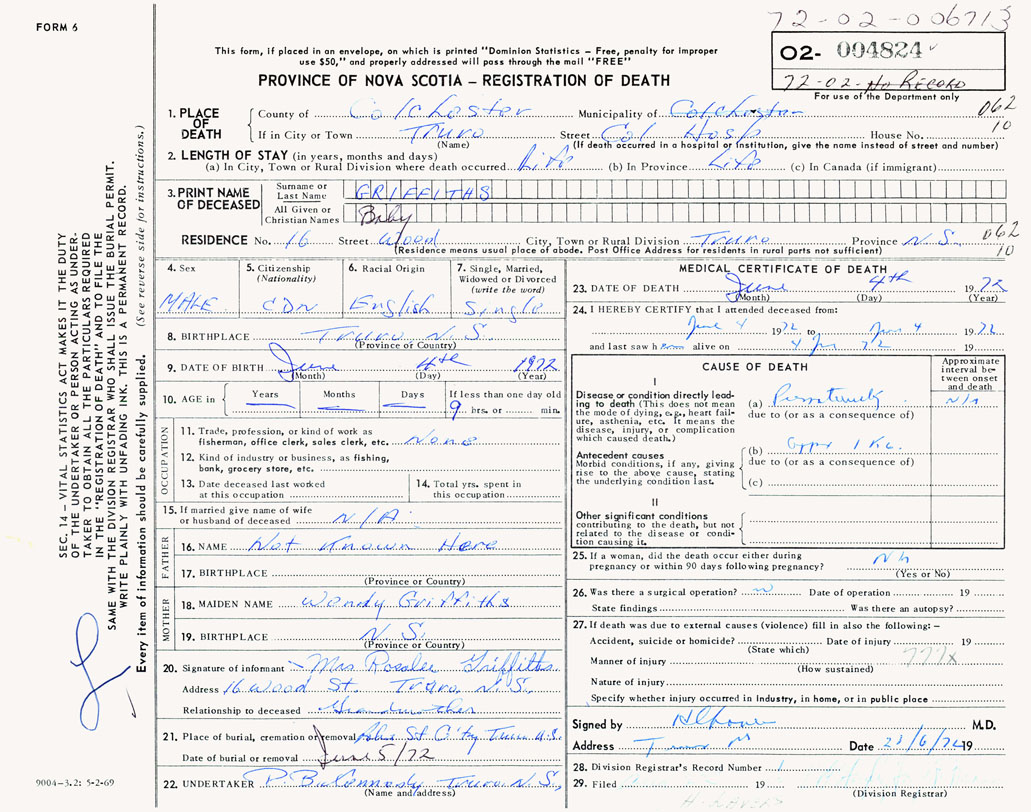 72-02-006713
FORM 6
02- 004824
This form, if placed in an envelope, on which is printed "Dominion Statistics – Free, penalty for improper
use $50," and properly addressed will pass through the mail "FREE"
72-02- No Record
PROVINCE OF NOVA SCOTIA – REGISTRATION OF DEATH
For use of the Department only
1. PLACE OF DEATH
County of Colchester Municipality of Colchester 062
If in City or Town Truro Street Col Hosp House No. 10
(Name) (If death occurred in a hospital or institution, give the name instead of street and number)
2. LENGTH OF STAY (in years, months and days)
(a) In City, Town or Rural Division where death occurred Life (b) In Province Life (c) In Canada (if immigrant)
3. PRINT NAME OF DECEASED
Surname or Last Name GRIFFITHS
All Given or Christian Names Baby
RESIDENCE No. 16 Street Wood City, Town or Rural Division Truro Province N.S. 062
(Residence means usual place of abode. Post Office Address for residents in rural parts not sufficient) 10
4. Sex
MALE
5. Citizenship
(Nationality)
CDN
6. Racial Origin
English
7. Single, Married,
Widowed or Divorced
(write the word)
Single
8. BIRTHPLACE Truro N.S.
(Province or Country)
9. DATE OF BIRTH June 4th 1972
(Month) (Day) (Year)
10. AGE in
Years
Months
Days
If less than one day old
9 hrs. or min.
OCCUPATION
11. Trade, profession, or kind of work as
fisherman, office clerk, sales clerk, etc. None
12. Kind of industry or business, as fishing,
bank, grocery store, etc.
13. Date deceased last worked
at this occupation
14. Total yrs. spent in
this occupation
15. If married give name of wife
or husband of deceased N/A
FATHER
16. NAME Not Known Here
17. BIRTHPLACE
(Province or Country)
MOTHER
18. MAIDEN NAME Wendy Griffiths
19. BIRTHPLACE N.S.
(Province or Country)
20. Signature of informant Mrs Rosalee Griffiths
Address 16 Wood St. Truro N.S.
Relationship to deceased Grandmother
21. Place of burial, cremation or removal St City Truro N.S.
Date of burial or removal June 5/72
22. UNDERTAKER Truro N.S.
(Name and address)
MEDICAL CERTIFICATE OF DEATH
23. DATE OF DEATH June 4th 1972
(Month) (Day) (Year)
24. I HEREBY CERTIFY that I attended deceased from:
June 4 1972 to June 4 1972
and last saw h alive on 4 72
CAUSE OF DEATH
Approximate
interval between
onset
and death
I
Disease or condition directly leading
to death (This does not mean
the mode of dying, e.g., heart failure,
asthenia, etc. It means the
disease, injury, or complication
which caused death.)
(a)
due to (or as a consequence of)
Antecedent causes
Morbid conditions, if any, giving
rise to the above cause, stating
the underlying condition last.
(b)
due to (or as a consequence of)
(c)
II
Other significant conditions
contributing to the death, but not
related to the disease or condition
causing it.
25. If a woman, did the death occur either during
pregnancy or within 90 days following pregnancy?
(Yes or No)
26. Was there a surgical operation? Date of operation 19
State findings Was there an autopsy?
27. If death was due to external causes (violence) fill in also the following: –
Accident, suicide or homicide? Date of injury 19
(State which)
Manner of injury 777x
(How sustained)
Nature of injury
Specify whether injury occurred in Industry, in home, or in public place
Signed by M.D.
Address Date 23/6/72 19
28. Division Registrar's Record Number
29. Filed 19
(Division Registrar)
SEC. 14 – VITAL STATISTICS ACT MAKES IT THE DUTY
OF THE UNDERTAKER OR PERSON ACTING AS UNDER-
TAKER TO OBTAIN ALL THE PARTICULARS REQUIRED
IN THE "REGISTRATION OF DEATH" AND TO FILE THE
SAME WITH THE DIVISION REGISTRAR WHO SHALL ISSUE THE BURIAL PERMIT.
WRITE PLAINLY WITH UNFADING INK. THIS IS A PERMANENT RECORD.
Every item of information should be carefully supplied. (See reverse side for instructions.)
9004-3.2: 5-2-69